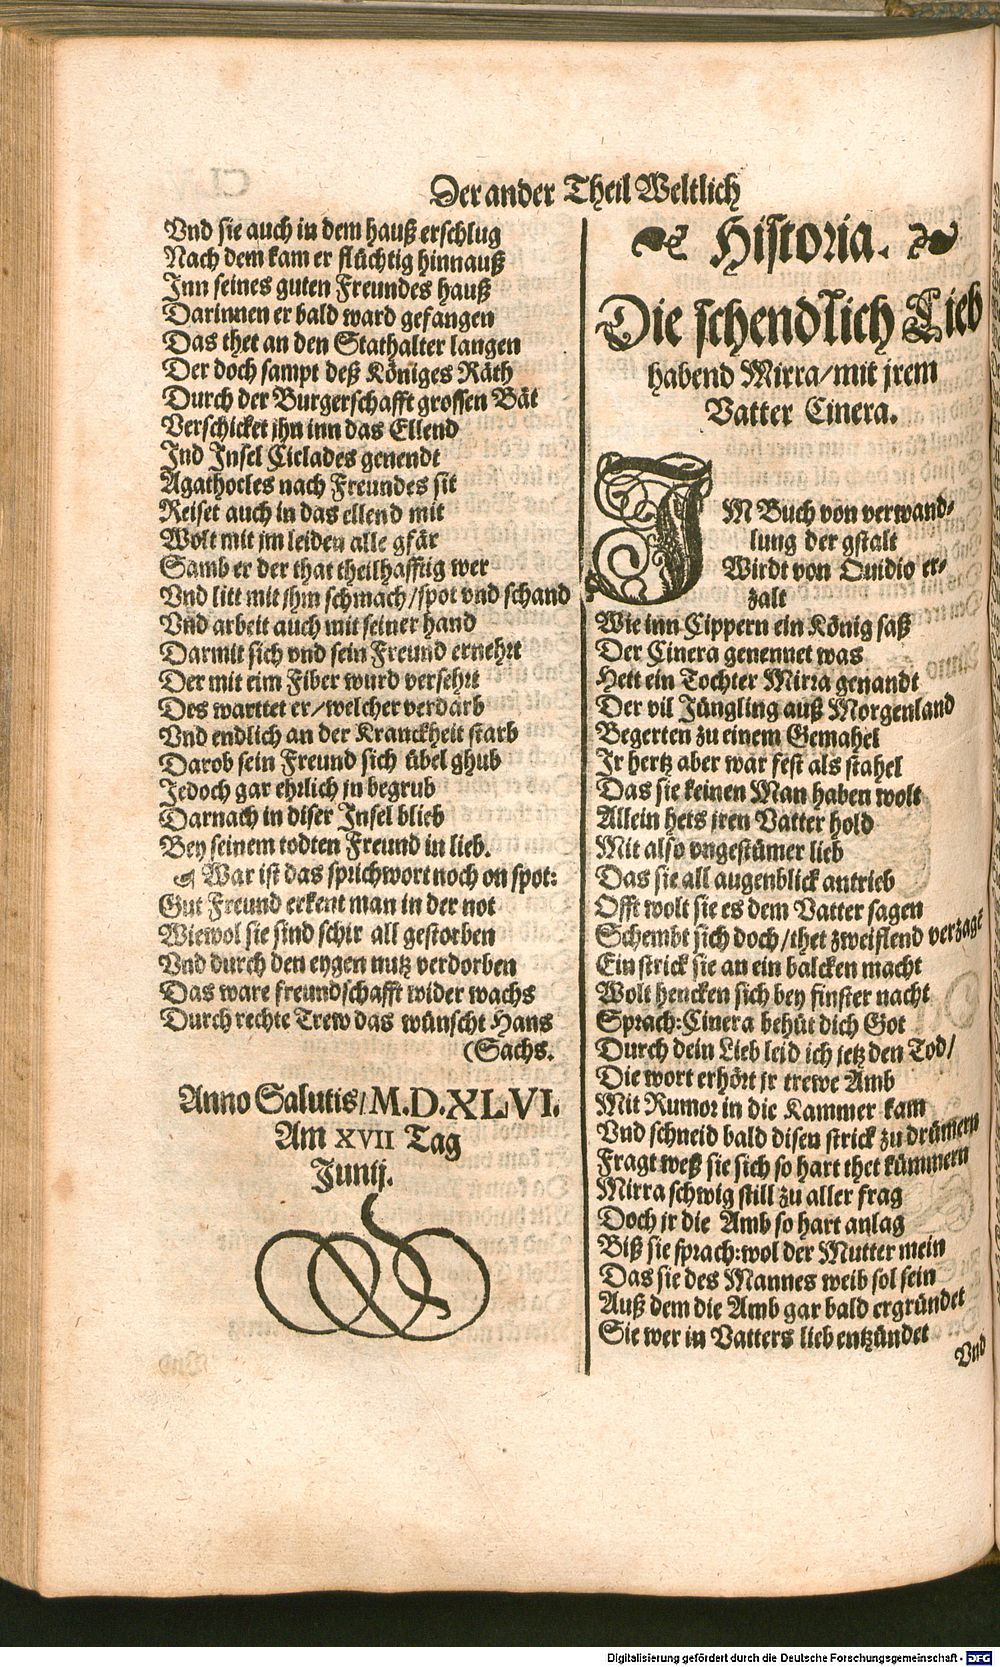 Der ander Theil Weltlich
Vnd sie auch in dem hauß erschlug
Nach dem kam er flüchtig hinnauß
Inn seines guten Freundes hauß
Darinnen er bald ward gefangen
Das thet an den Stathalter langen
Der doch sampt deß Königes Räth
Durch der Burgerschafft grossen Bät
Verschicket jhn inn das Ellend
Ind Insel Ciclades genendt
Agathocles nach Freundes sit
Reiset auch in das ellend mit
Wolt mit jm leiden alle gfär
Samb er der that theilhafftig wer
Vnd litt mit jhm schmach/spot vnd schand
Vnd arbeit auch mit seiner hand
Darmit sich vnd sein Freund ernehrt
Der mit eim Fiber wurd versehrt
Des warttet er/welcher verdarb
Vnd endlich an der Kranckheit starb
Darob sein Freund sich übel ghub
Jedoch gar ehrlich jn begrub
Darnach in diser Insel blieb
Bey seinem todten Freund in lieb.
War ist das sprichwort noch on spot:
Gut Freund erkent man in der not
Wiewol sie sind schir all gestorben
Vnd durch den eygen nutz verdorben
Das ware freundschafft wider wachs
Durch rechte Trew das wünscht Hans
(Sachs.
Anno Salutis/M.D.XLVI.
Am XVII Tag
Junij.
Historia.
Die schendlich Lieb
habend Mirra/mit jrem
Vatter Cinera.
IM Buch von verwand-
lung der gstalt
Wirdt von Ouidio er-
zalt
Wie inn Cippern ein König saß
Der Cinera genennet was
Hett ein Tochter Mirra genandt
Der vil Jüngling auß Morgenland
Begerten zu einem Gemahel
Ir hertz aber war fest als stahel
Das sie keinen Man haben wolt
Allein hets jren Vatter hold
Mit also vngestümer lieb
Das sie all augenblick antrieb
Offt wolt sie es dem Vatter sagen
Schembt sich doch/thet zweiflend verzagē
Ein strick sie an ein balcken macht
Wolt hencken sich bey finster nacht
Sprach:Cinera behüt dich Got
Durch dein Lieb leid ich jetz den Tod/
Die wort erhört jr trewe Amb
Mit Rumor in die Kammer kam
Vnd schneid bald disen strick zu drümern
Fragt weß sie sich so hart thet kümmern
Mirra schwig still zu aller frag
Doch jr die Amb so hart anlag
Biß sie sprach:wol der Mutter mein
Das sie des Mannes weib sol sein
Auß dem die Amb gar bald ergründet
Sie wer in Vatters lieb entzündet
Vnd
Digitalisierung gefördert durch die Deutsche Forschungsgemeinschaft - DFG